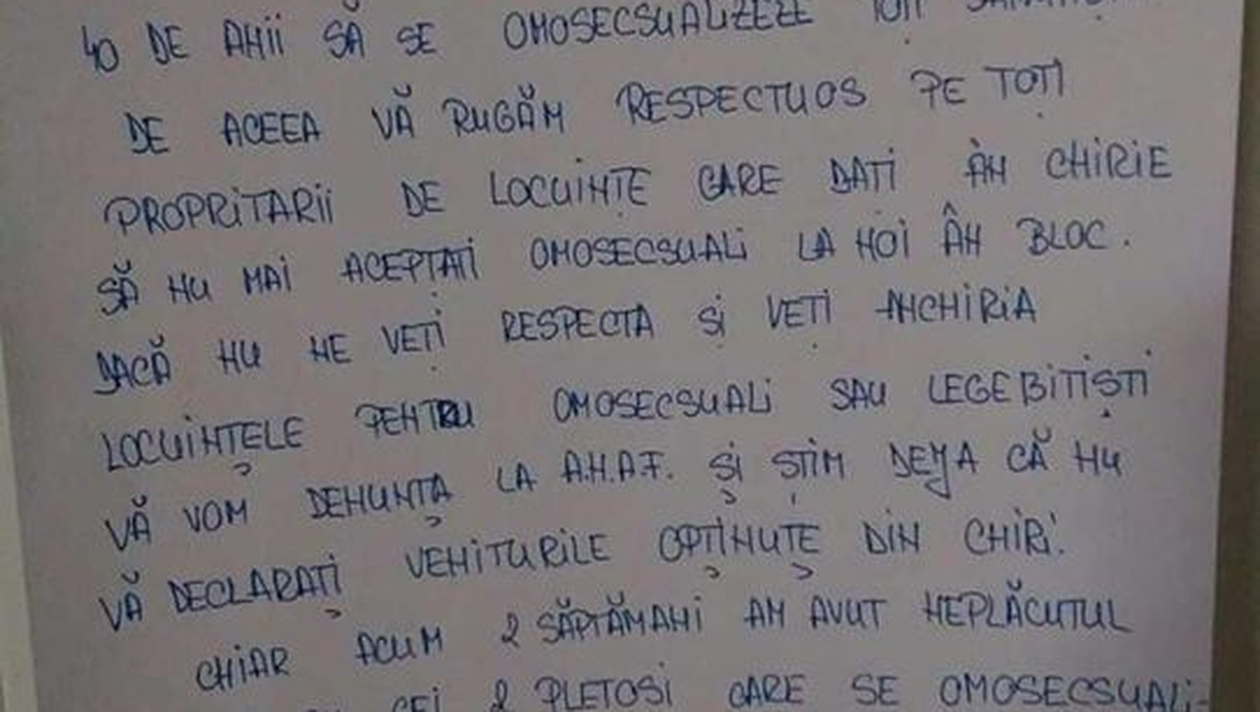 40 DE ANII SĂ SE OMOSECSUALIZEZE TOȚI
DE ACEEA VĂ RUGĂM RESPECTUOS PE TOȚI
PROPRITARII DE LOCUINȚE CARE DAȚI ÂN CHIRIE
SĂ NU MAI ACEPTAȚI OMOSECSUALI LA NOI ÂN BLOC.
DACĂ NU NE VEȚI RESPECTA SI VEȚI ÂNCHIRIA
LOCUINȚELE PENTRU OMOSECSUALI SAU LEGEBITIȘTI
VĂ VOM DENUNȚA LA A.N.A.F. ȘI ȘTIM DEJA CĂ NU
VĂ DECLARAȚI VENITURILE OPȚINUȚE DIN CHIRI.
CHIAR ACUM 2 SĂPTĂMANI AM AVUT NEPLĂCUTUL
CEI 2 PLETOSI CARE SE OMOSECSUALI-